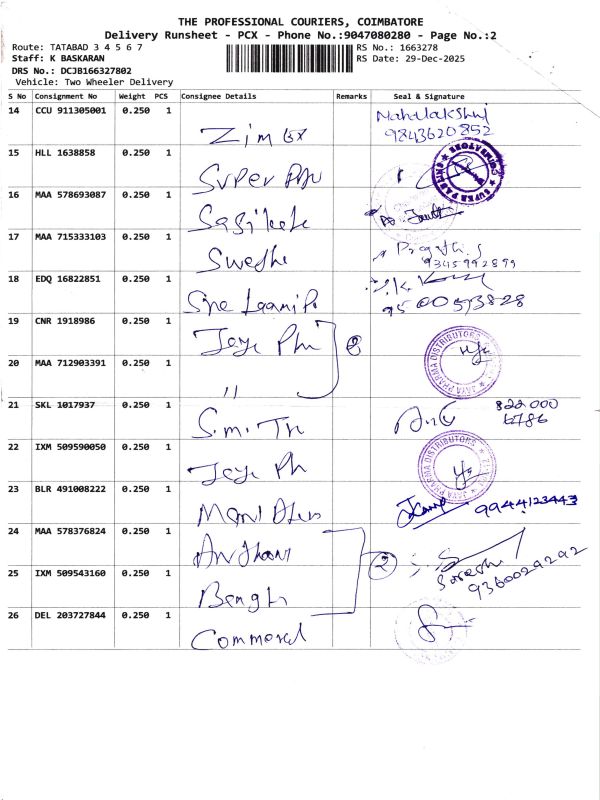 THE PROFESSIONAL COURIERS, COIMBATORE
Delivery Runsheet - PCX - Phone No.:9047080280 - Page No.:2
Route: TATABAD 3 4 5 6 7
RS No.: 1663278
Staff: K BASKARAN
RS Date: 29-Dec-2025
DRS No.: DCJB166327802
Vehicle: Two Wheeler Delivery
S No Consignment No Weight PCS Consignee Details Remarks Seal & Signature
14 CCU 911305001 0.250 1
Mahalakshmi
9843620852
Zim
15 HLL 1638858 0.250 1
Super
16 MAA 578693087 0.250 1
17 MAA 715333103 0.250 1
Swethe
9345992899
18 EDQ 16822851 0.250 1
9500573828
19 CNR 1918986 0.250 1
Jaye Ph
2
JAYA PHARMA DISTRIBUTORS
20 MAA 712903391 0.250 1
"
21 SKL 1017937 0.250 1
822000
6786
S.m. Tr
22 IXM 509590050 0.250 1
Jaye Ph
JAYA PHARMA DISTRIBUTORS
23 BLR 491008222 0.250 1
9944123443
Mani
24 MAA 578376824 0.250 1
2
Suresh
9360029292
25 IXM 509543160 0.250 1
26 DEL 203727844 0.250 1
Commercl